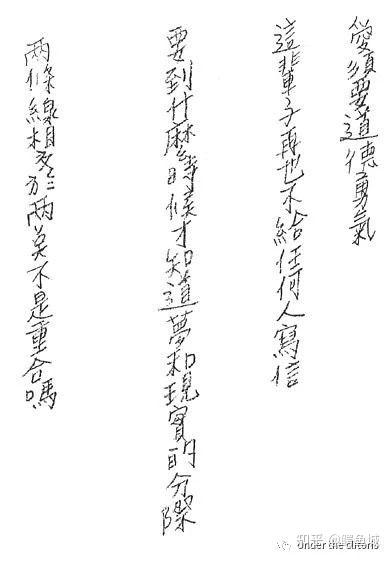 愛須要道德勇氣
這輩子再也不給任何人寫信
要到什麼時候才知道夢和現實的分際
两條線相交於两奌不是重合嗎
知乎 @鳄鱼城
under the clitoris